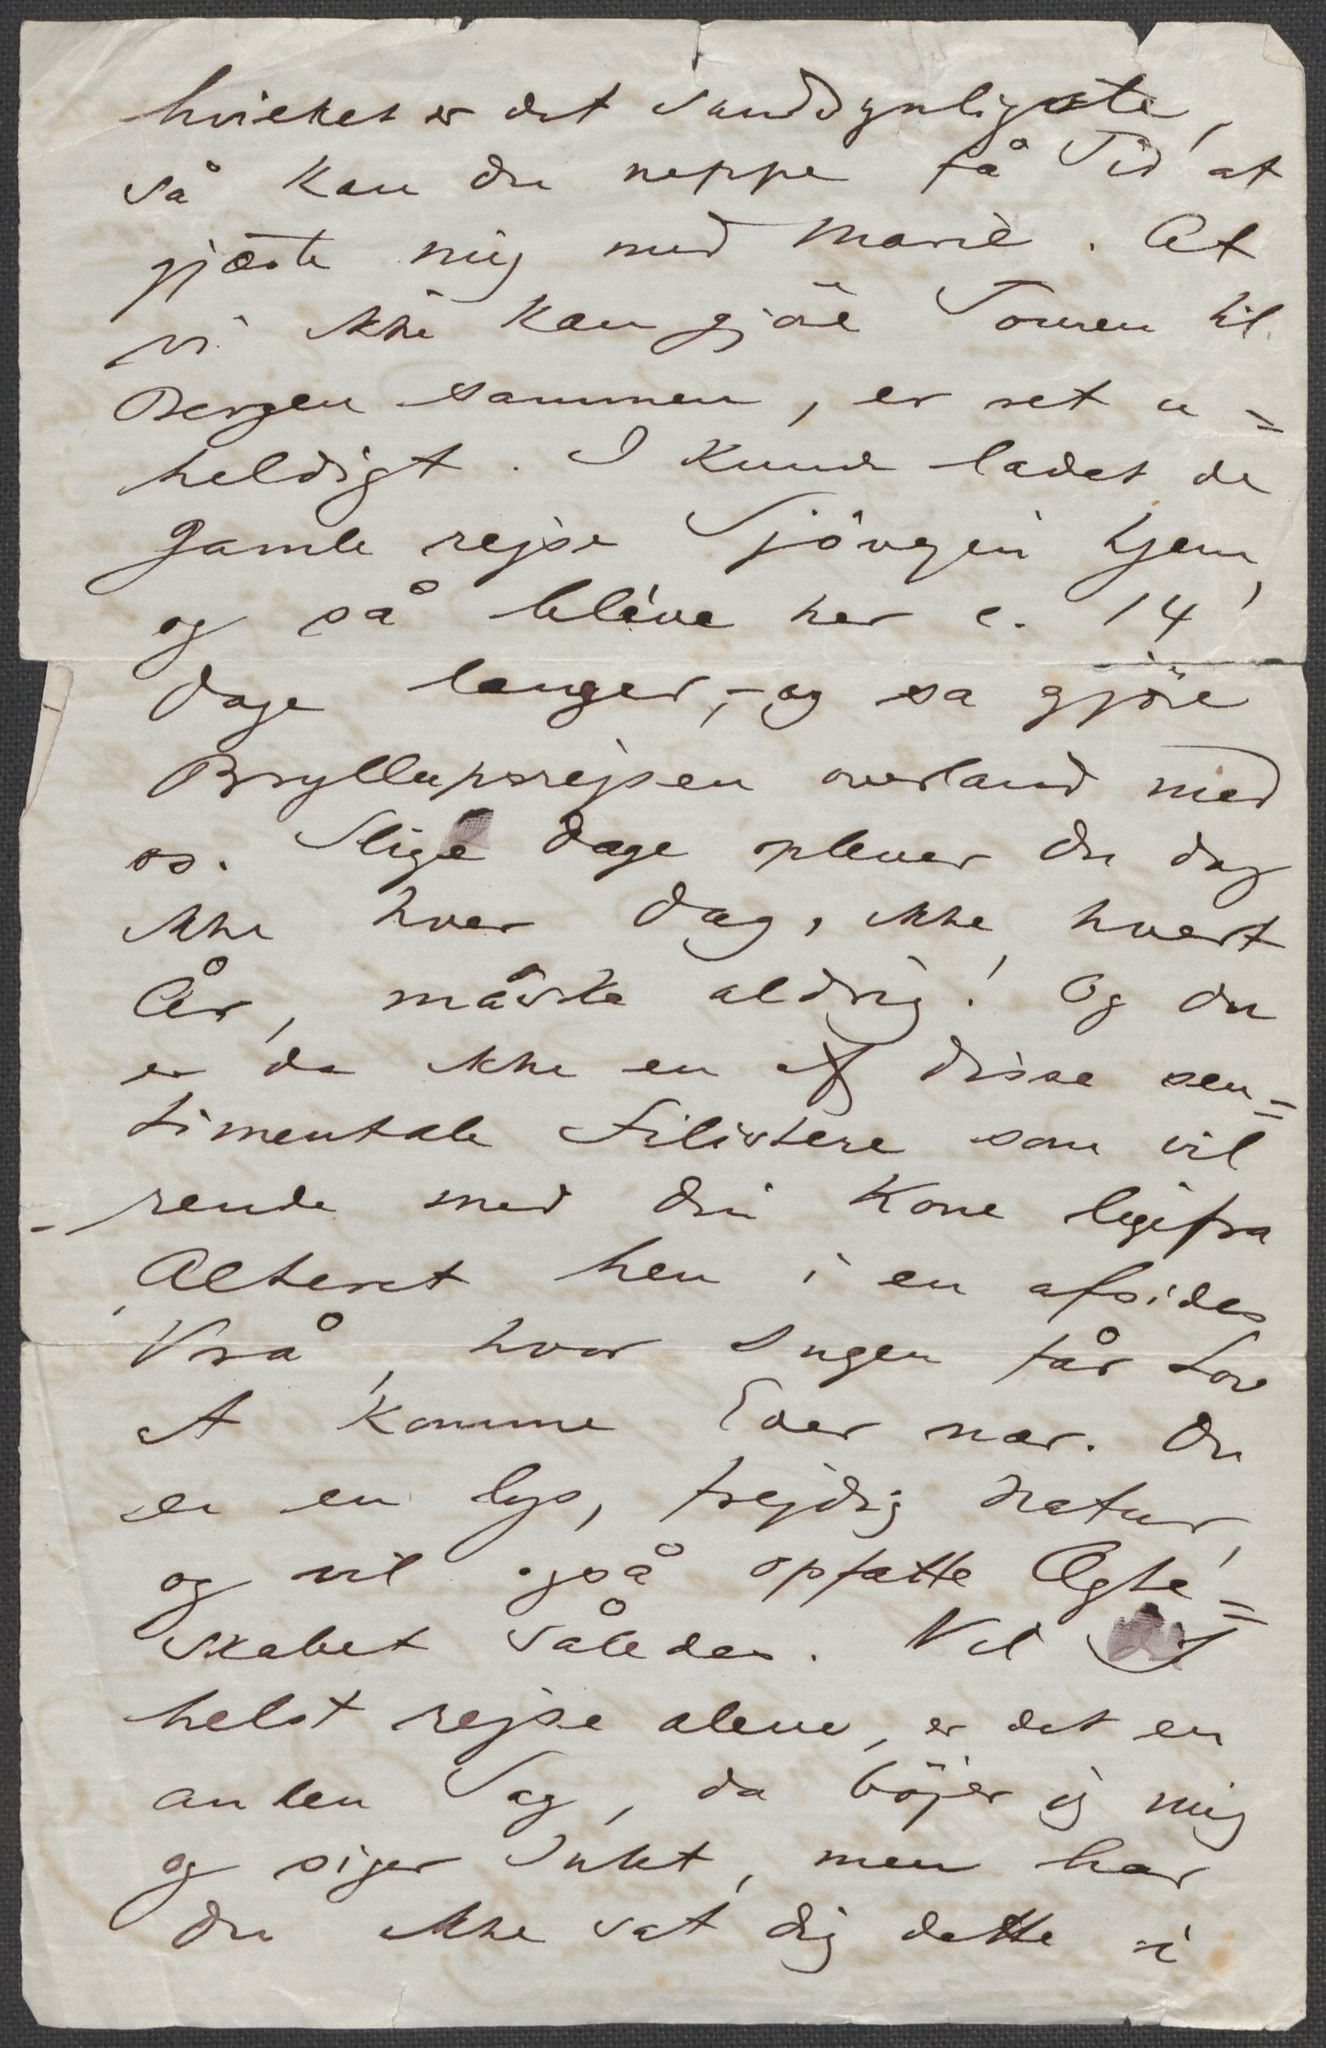 hvilket er det sandsynligste,
så kan du neppe få Tid at
gjæste mig med Marie. At
vi ikke kan gjöre Touren til
Bergen sammen, er ret u=
heldigt. I kunde ladet de
Gamle rejse Sjövejen hjem,
og så bleve her c. 14
Dage længer, – og så gjöre
Bryllupsrejsen overland med
os. Slige Dage oplever du dog
ikke hver Dag, ikke hvert
År, måske aldrig! Og du
er da ikke en af disse sen=
timentale Filistere som vil
rende med din Kone ligefra
Alteret hen i en afsides
Vrå, hvor Ingen får Lov
at komme Eder nær. Du
er en lys, frejdig Natur,
og vil også opfatte Ægte=
skabet således. Vil I
helst rejse alene, er det en
anden Sag, da böjer jeg mig
og siger Intet, men har
du ikke sat dig dette i